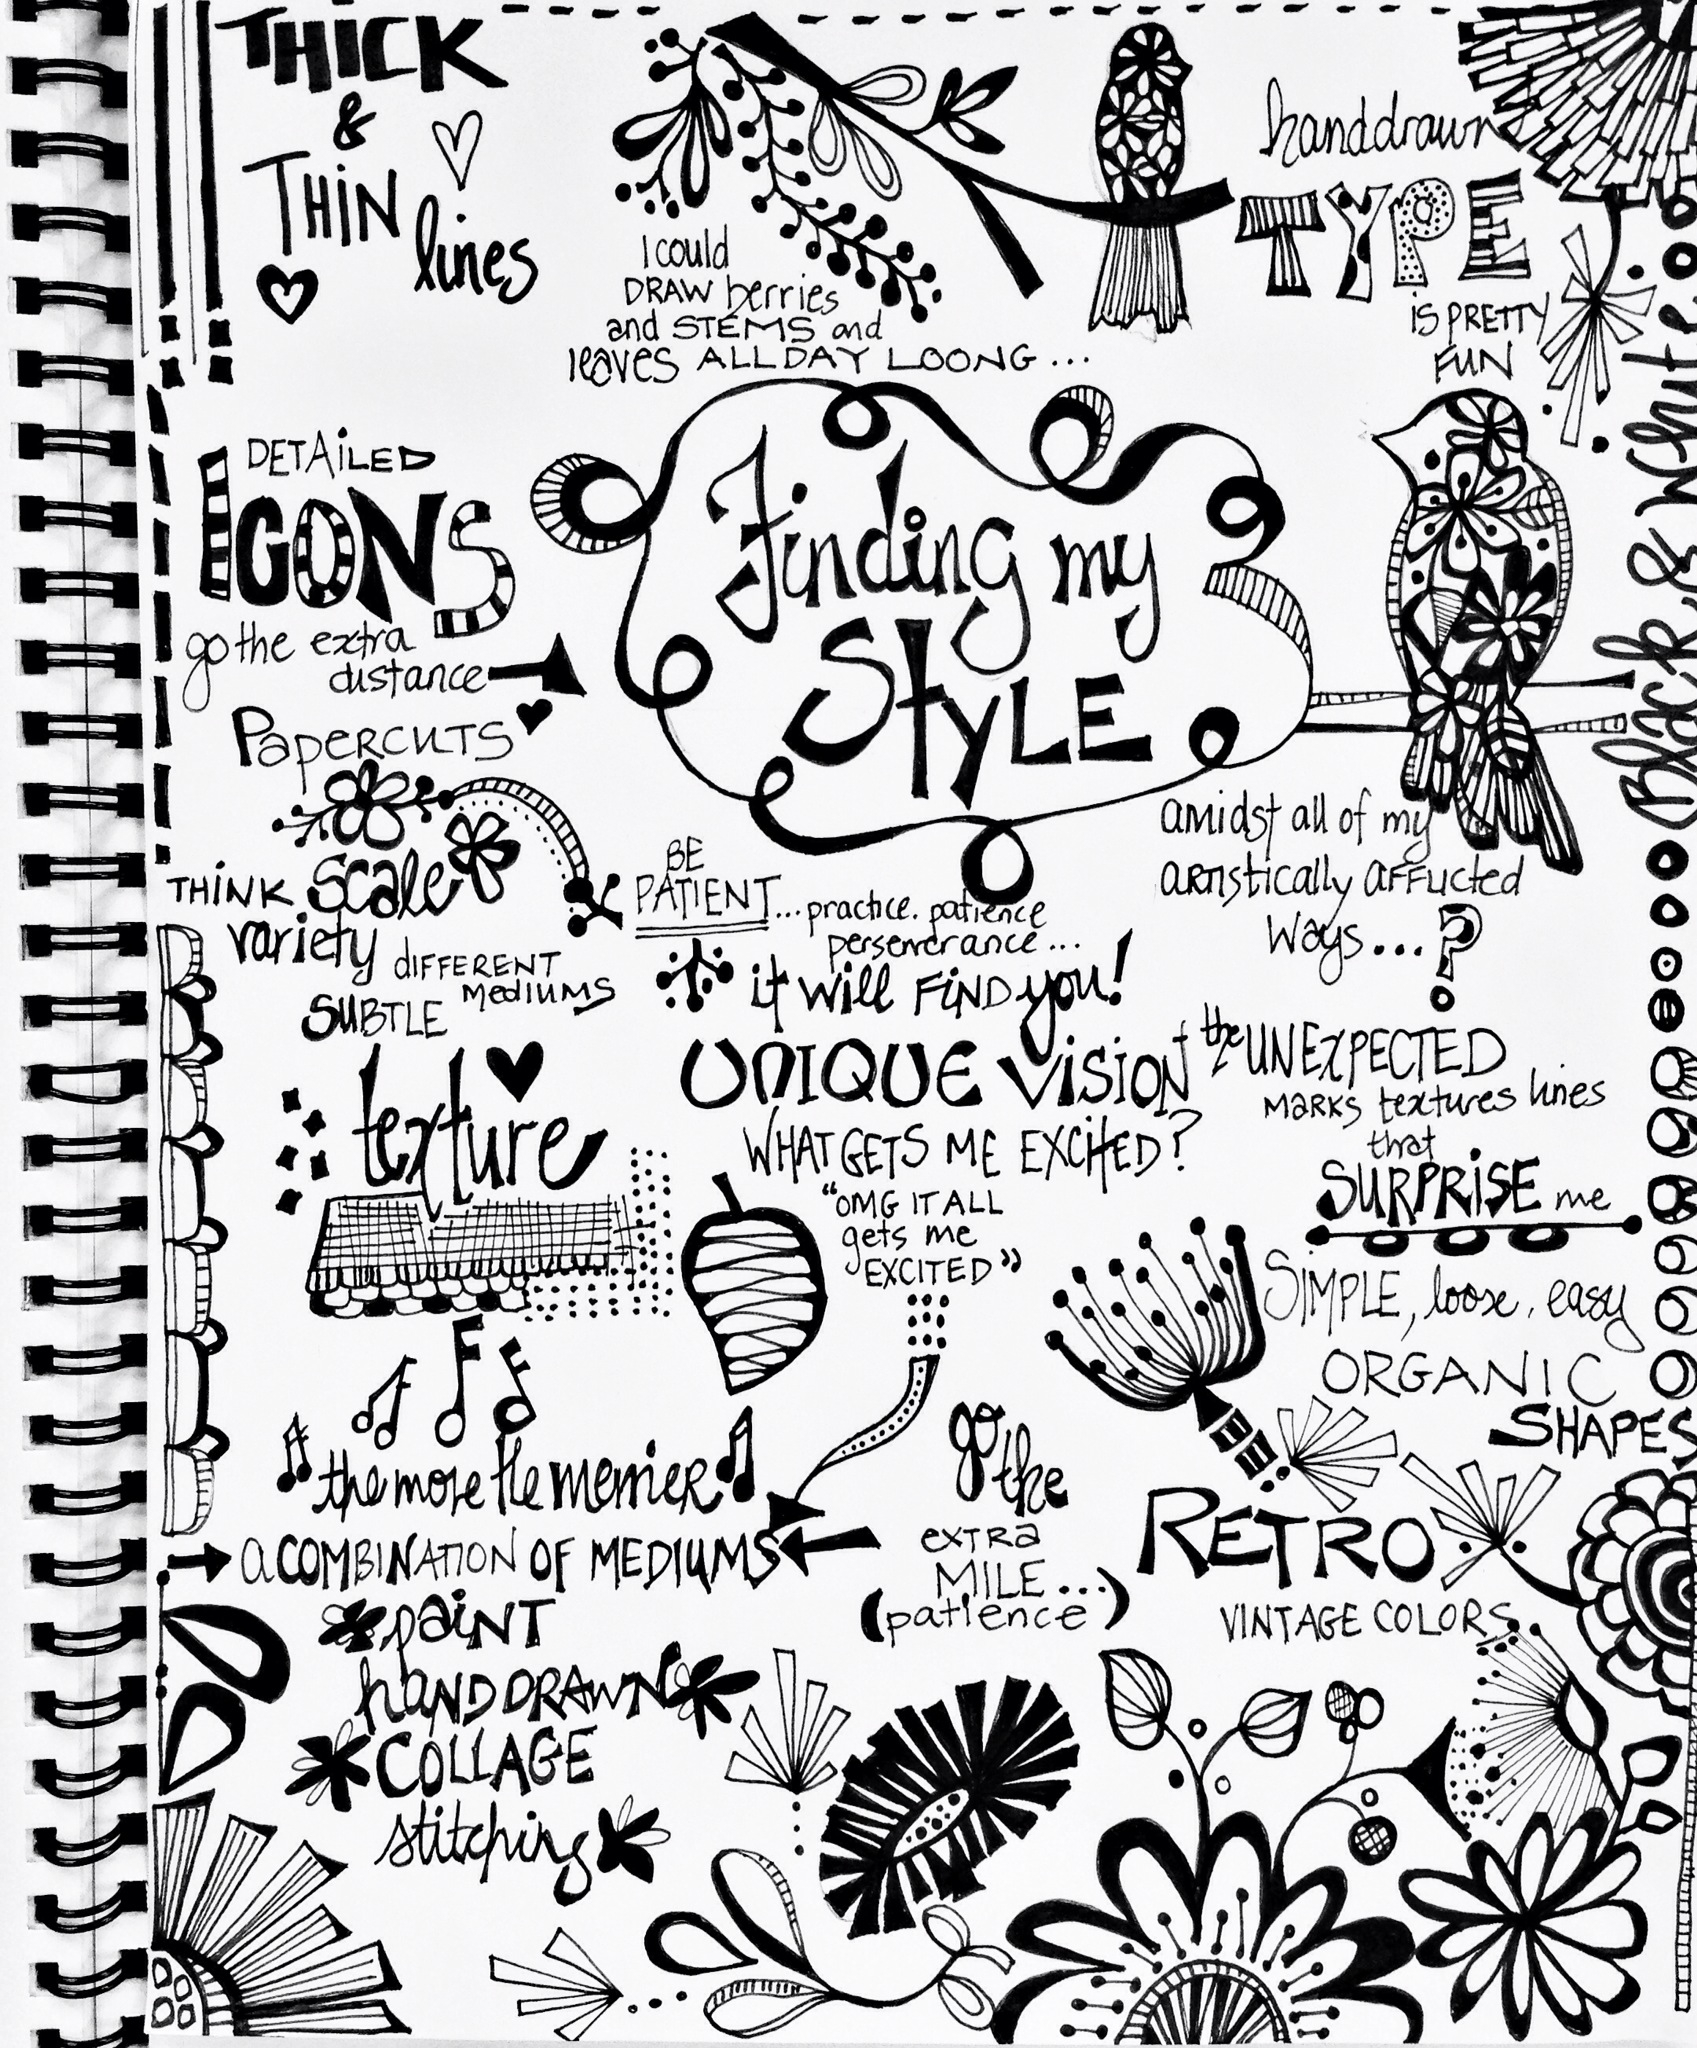 THICK
&
THIN
lines
I could
DRAW berries
and STEMS and
leaves ALL DAY LOONG ...
handdrawn
TYPE
IS PRETTY
FUN
Black & White
DETAILED
ICONS
go the extra
distance
PAPERCUTS
Finding my
STYLE
amidst all of my
ARTistically AFFLICTED
Ways...?
THINK scale
variety DIFFERENT
MEDIUMS
SUBTLE
texture
BE
PATIENT... practice. patience
perseverance...
it will FIND you!
UNIQUE VISION
WHAT GETS ME EXCITED?
"OMG IT ALL
gets me
EXCITED"
the UNEXPECTED
MARKS textures lines
that
SURPRISE me
SIMPLE, loose, easy
ORGANIC
SHAPES
the more the merrier
a COMBINATION OF MEDIUMS
paint
HAND DRAWN
COLLAGE
stitching
go
the
extra
MILE...
(patience)
RETRO
VINTAGE COLORS